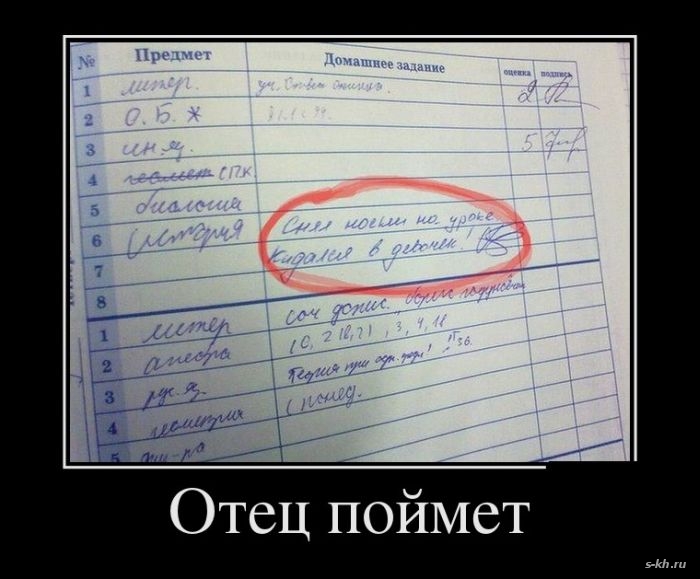 № Предмет Домашнее задание оценка подпись
1 литер. 2
2 О.Б.Ж
3 ин.яз. 5
4 геомет СПК.
5 биология
6 история Снял носки на уроке
7 Кидался в девочек!
8
1 литер соч допис.
2 алгебра
3 рус.яз. Теория при
4 геометрия (понед.
5 физ-ра
Отец поймет
s-kh.ru